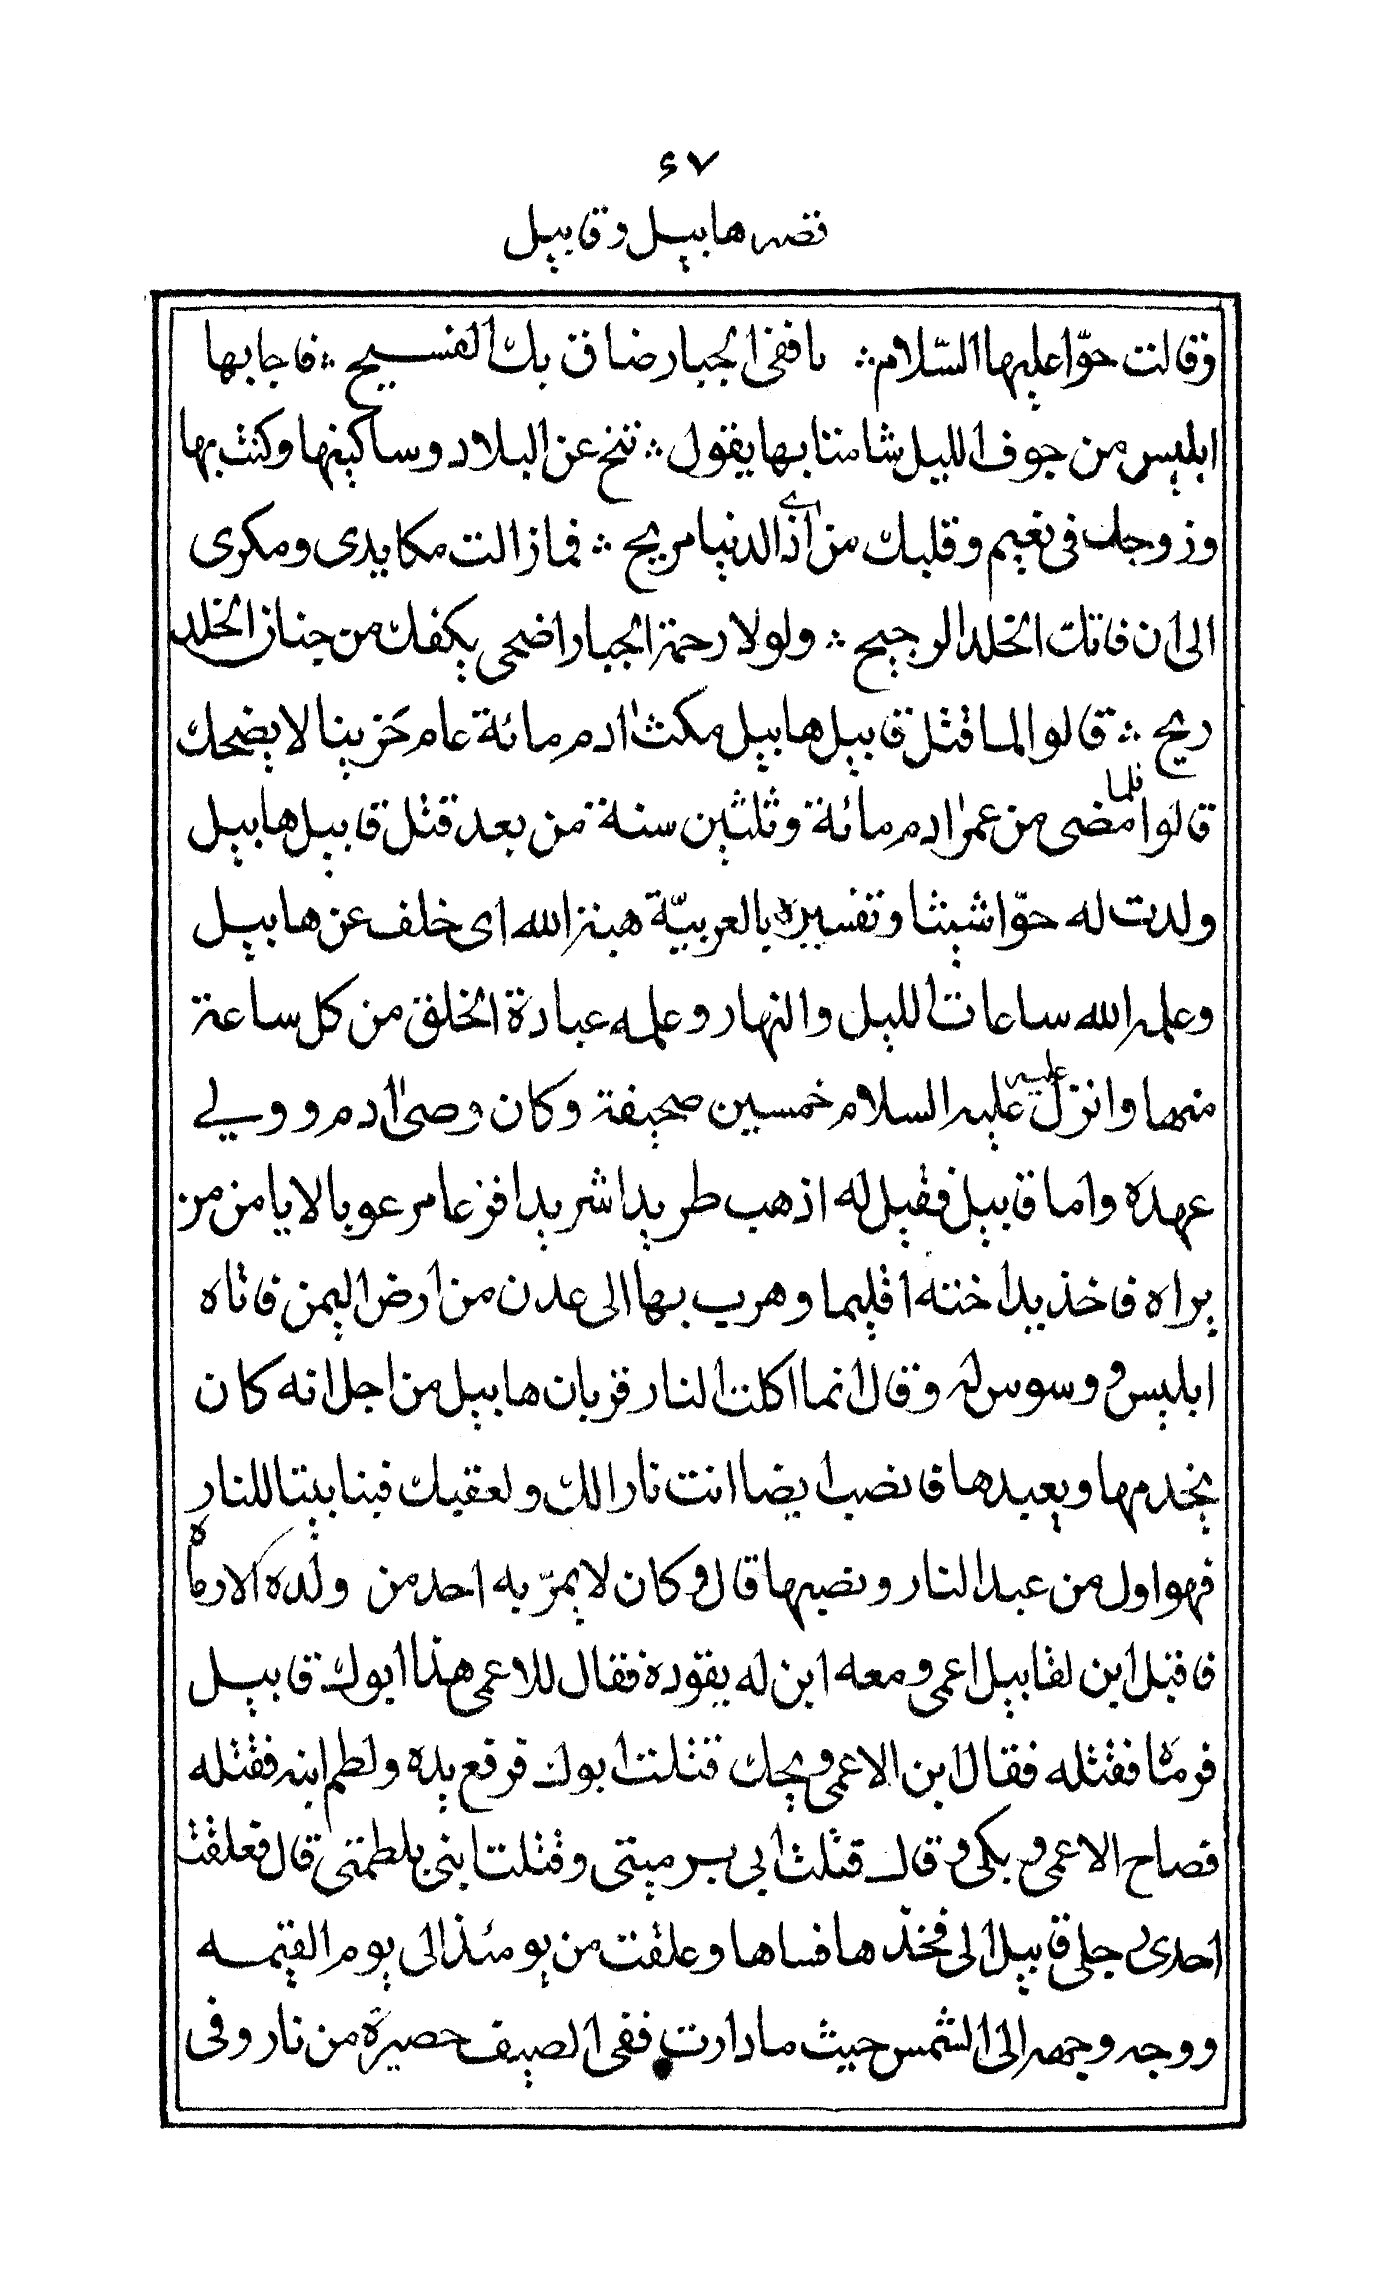 ٤٧
قصه هابيل وقابيل
وقالت حوّا عليها السّلام ؞ باففى الجبار ضاق بك الفسيح ؞ فاجابها
ابليس من جوف الليل شامتا بها يقول ؞ تنح عن البلاد وساكنيها وكنت بها
وزوجك فى نعيم وقلبك من اذي الدنيا مريح ؞ فما زالت مكايدى ومكرى
الى ان فاتك الخلد الرجيح ؞ ولولا رحمة الجبار اضحى بكفك من جنان الخلد
ريح ؞ قالوا لما قتل قابيل هابيل مكث ادم مائة عام حَزينا لا يضحك
قالوا فلما مضى من عمر ادم مائة وثلثين سنة من بعد قتل قابيل هابيل
ولدت له حوّا شيثا وتفسيره بالعربيّة هبة الله اى خلف عن هابيل
وعلمه الله ساعات الليل والنهار وعلمه عبادة الخلق من كل ساعة
منها وانزل عليه عليه السلام خمسين صحيفة وكان وصى ادم وولي
عهده واما قابيل فقيل له اذهب طريدا شريدا فزعا مرعوبا لا يامن من
يراه فاخذ بيد اخته اقليما وهرب بها الى عدن من ارض اليمن فاتاه
ابليس ووسوس له وقال انما اكلت النار قربان هابيل من اجل انه كان
يخدمها ويعبدها فانصب ايضا انت نارا لك ولعقبك فبنا بيتا للنار
فهو اول من عبد النار ونصبها قال وكان لا يمرّ به احد من ولده الا رماه
فاقبل ابن لقابيل اعمى ومعه ابن له يقوده فقال للاعمى هذا ابوك قابيل
فرماه فقتله فقال ابن الاعمى ويحك قتلت ابوك فرفع يده ولطم ابنه فقتله
فصاح الاعمى وبكى وقال قتلت ابي برميتى وقتلت ابنى بلطمتى قال فعلقت
احدى رجلى قابيل الى فخذها فساها وعلقت من يومئذ الى يوم القيمه
ووجه وجهه الى الشمس حيث ما دارت ففى الصيف حصيرة من نار وفى